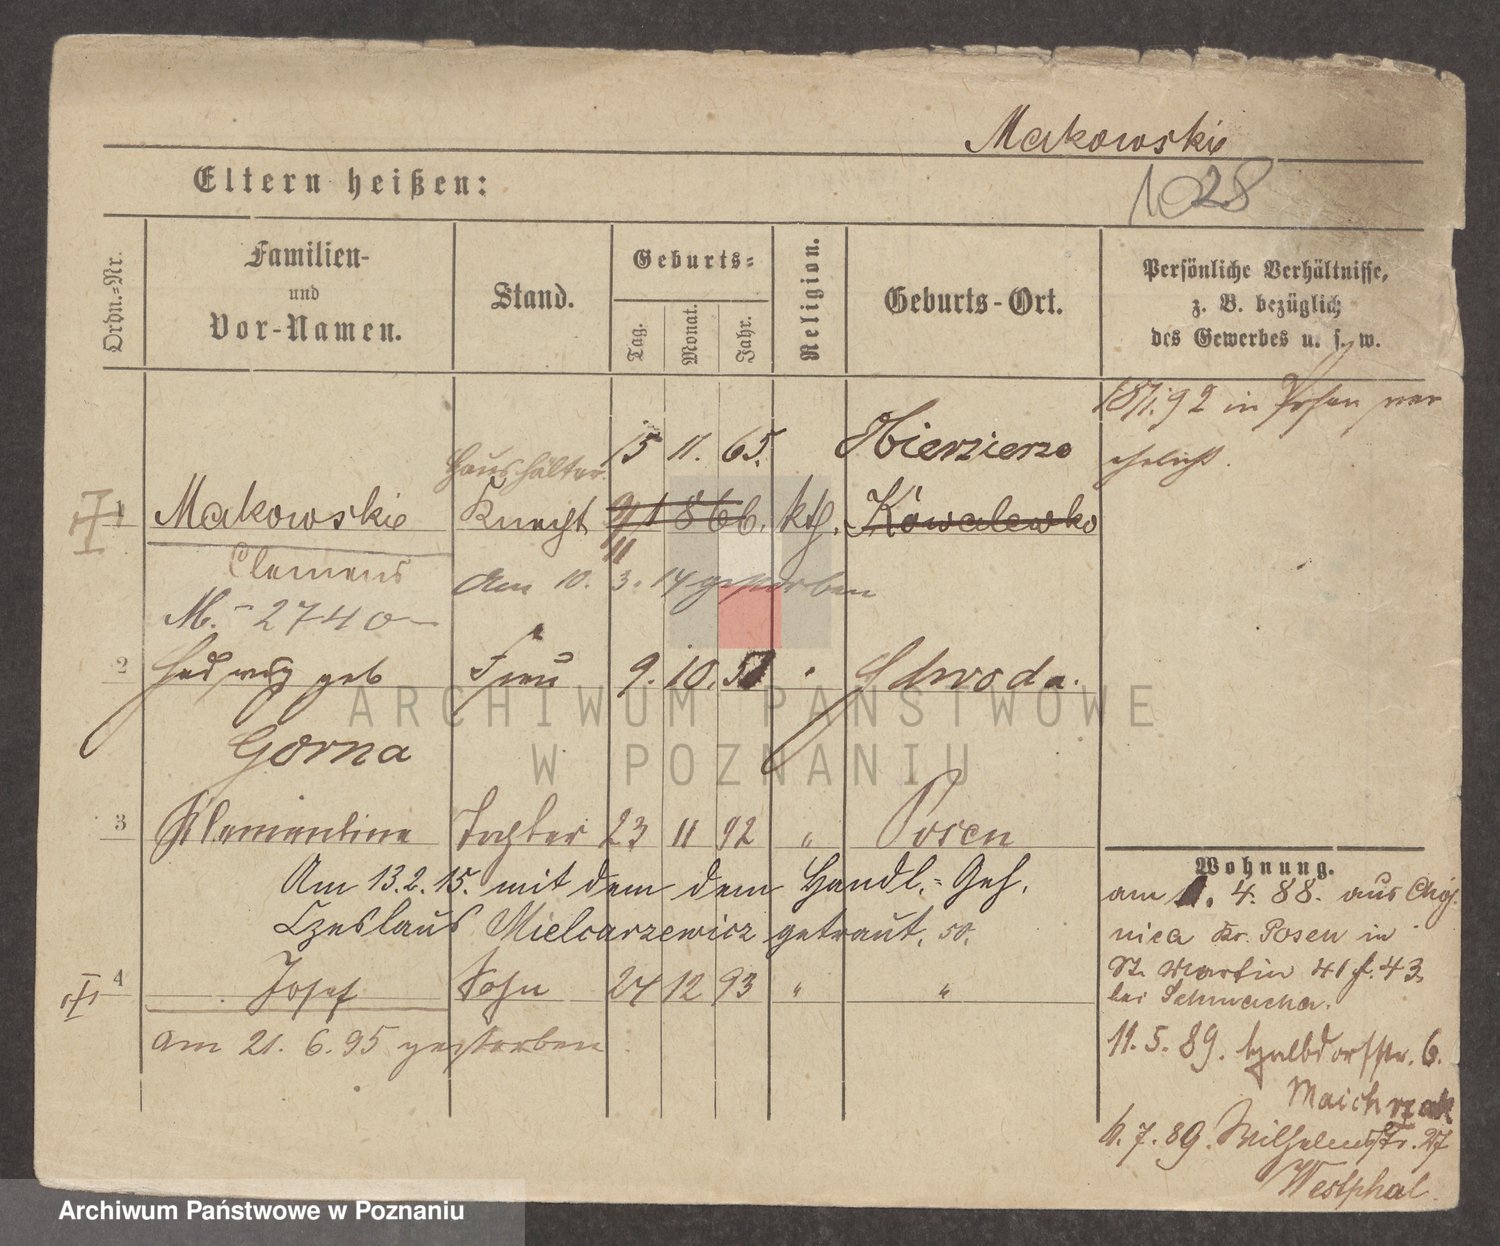 Makowski
1028
Eltern heißen:
Ordn.-Nr.
Familien-
und
Vor-Namen.
Stand.
Geburts-
Tag.
Monat.
Jahr.
Religion.
Geburts-Ort.
Persönliche Verhältnisse,
z. B. bezüglich
des Gewerbes u. s. w.
18/1.92 in Posen ver
ehelicht.
15 11. 65.
Haushälter
1 Makowski Knecht 9 1 866. kth. Kowalewko
11
Clemens
Am 10. 3. 14 gestorben
M. - 2740 -
2 Hedwig geb Frau 9. 10. Schroda.
Gorna
3 Klementine Tochter 23 11 92 " Posen
Am 13.2.15. mit dem dem Handl.-Geh.
Czeslaus Mielcarzewicz getraut. 50.
4 Josef Sohn 24 12 93 " "
am 21. 6. 95 gestorben
Wohnung.
am 1. 4. 88. aus
nica Kr. Posen in
St. Martin 41 43
bei
11. 5. 89. Halbdorfstr. 6.
Maichrzak
6. 7. 89. Wilhelmstr. 27
Westphal.
ARCHIWUM PAŃSTWOWE
W POZNANIU
Archiwum Państwowe w Poznaniu